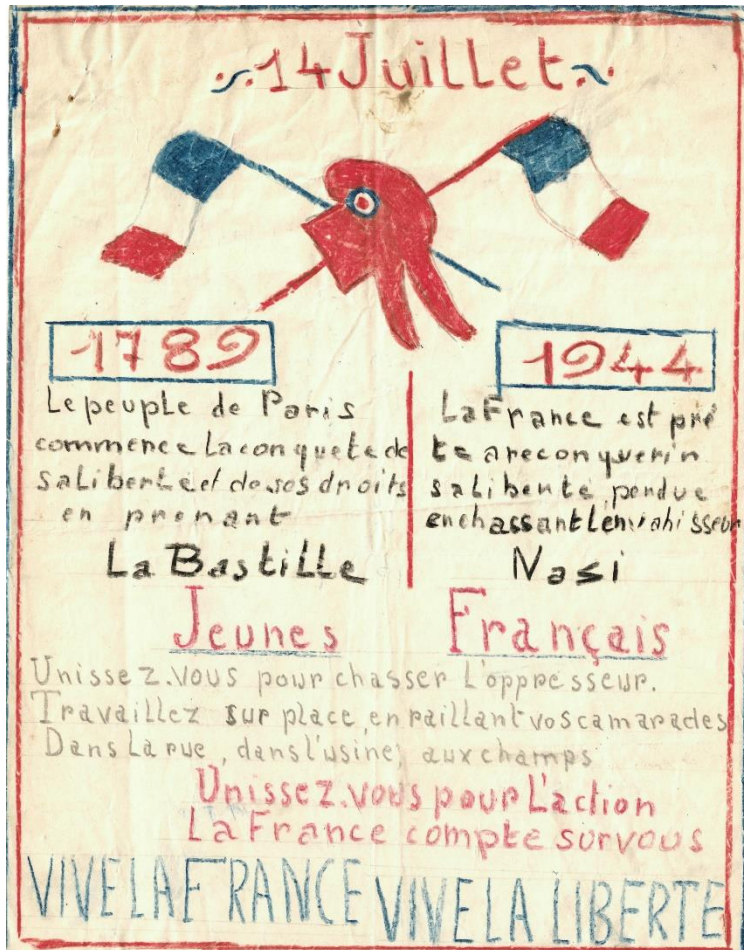 14 Juillet
1789
Le peuple de Paris
commence la conquete de
sa liberte et de ses droits
en prenant
La Bastille
1944
La France est pré
te a reconquerir
sa liberté perdue
en chassant l'envahisseur
Nasi
Jeunes Français
Unissez.vous pour chasser l'oppresseur.
Travaillez sur place, en raillant vos camarades
Dans la rue, dans l'usine, aux champs
Unissez.vous pour L'action
La France compte sur vous
VIVE LA FRANCE VIVE LA LIBERTE